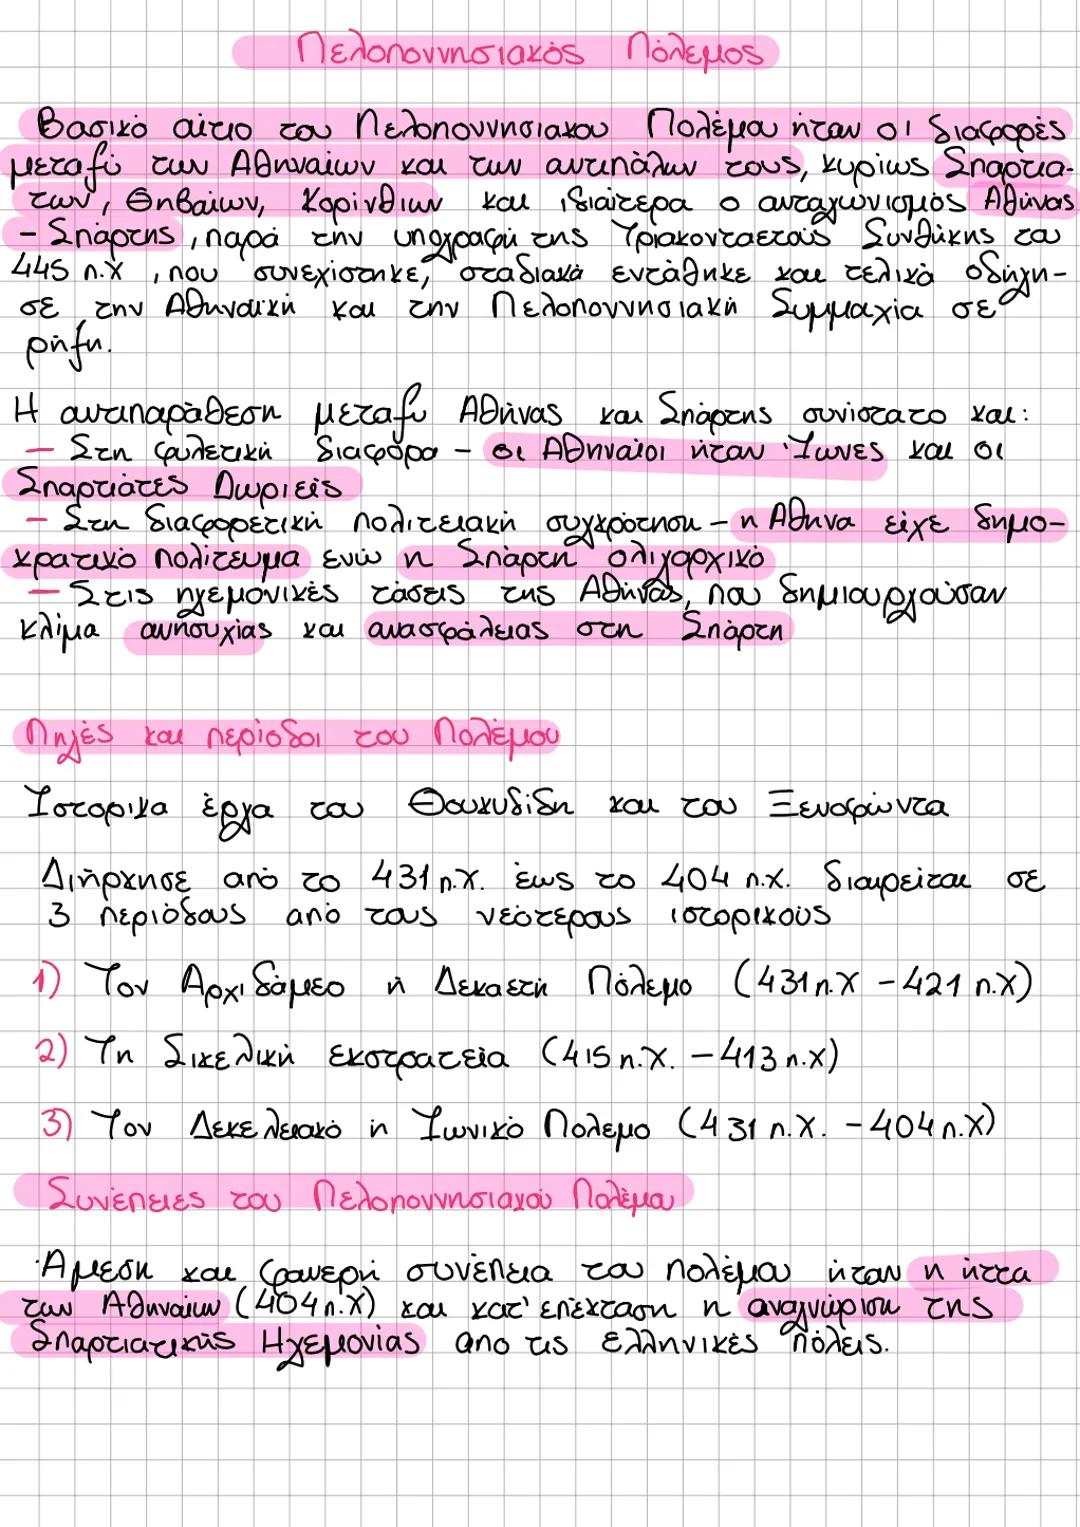 Πελοποννησιακός Πόλεμος
Βασικό αίτιο του Πελοποννησιακου Πολέμου ήταν οι διαφορές
μεταξύ των Αθηναίων και των αντιπάλων τους, κυρίως Σπαρτια-
των, Θηβαίων, Κορίνθιων και ιδιαίτερα ο ανταγωνισμός Αθήνας
- Σπάρτης, παρά την υπογραφή της Τριακονταετούς Συνθήκης του
445 π.Χ , που συνεχίστηκε, σταδιακά εντάθηκε και τελικά οδήγη-
σε την Αθηναϊκή και την Πελοποννησιακή Συμμαχία σε
ρήξη.
Η αντιπαράθεση μεταξύ Αθήνας και Σπάρτης συνίστατο και:
- Στη φυλετική διαφόρα - οι Αθηναίοι ήταν Ίωνες και οι
Σπαρτιάτες Δωριείς
- Στη διαφορετική πολιτειακή συγκρότηση - η Αθήνα είχε δημο-
κρατικό πολίτευμα ενώ η Σπάρτη ολιγαρχικό
- Στις ηγεμονικές τάσεις της Αθήνας, που δημιουργούσαν
κλίμα ανησυχίας και ανασφάλειας στη Σπάρτη
Πηγές και περίοδοι του Πολέμου
Ιστορικα έργα του Θουκυδίδη και του Ξενοφώντα
Διήρκησε από το 431 π.Χ. έως το 404 π.χ. διαιρείται σε
3 περιόδους από τους νεότερους ιστορικούς
1) Τον Αρχιδάμεο ή Δεκαετή Πόλεμο (431 π.Χ - 421 π.Χ)
2) Τη Σικελική εκστρατεία (415 π.Χ. - 413 π.Χ)
3) Τον Δεκελειακό ή Ιωνικό Πόλεμο (431 π.Χ. - 404 π.Χ)
Συνέπειες του Πελοποννησιακού Πολέμου
Άμεση και φανερή συνέπεια του πολέμου ήταν η ήττα
των Αθηναίων (404 π.Χ) και κατ' επέκταση η αναγνώριση της
Σπαρτιατικής Ηγεμονίας απο τις ελληνικές πόλεις.